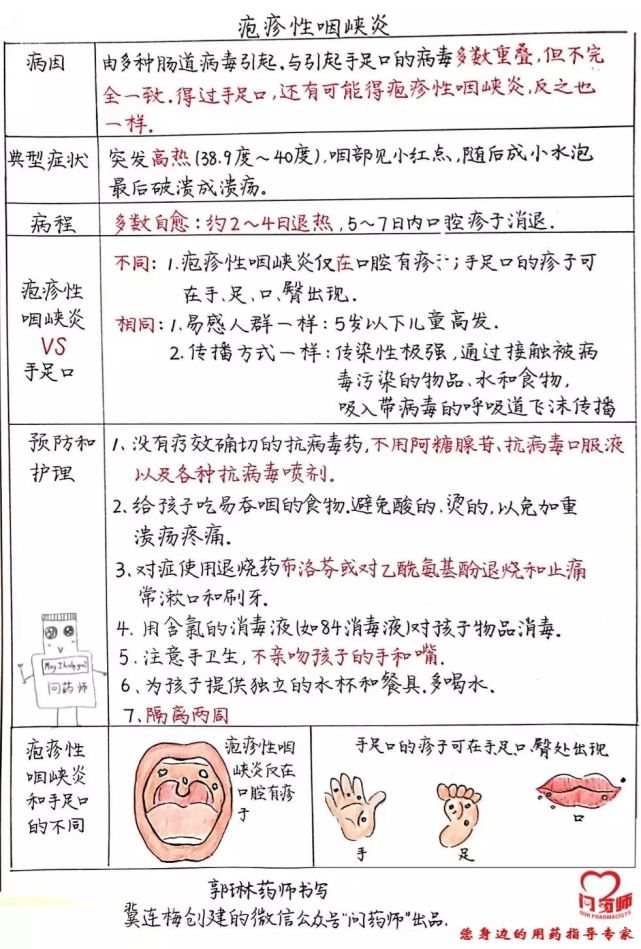 疱疹性咽峡炎
病因
由多种肠道病毒引起.与引起手足口的病毒多数重叠,但不完
全一致.得过手足口,还有可能得疱疹性咽峡炎,反之也
一样.
典型症状
突发高热(38.9度～40度),咽部见小红点,随后成小水泡
最后破溃成溃疡。
病程
多数自愈:约2～4日退热,5～7日内口腔疹子消退.
疱疹性
咽峡炎
VS
手足口
不同:1.疱疹性咽峡炎仅在口腔有疹子;手足口的疹子可
在手、足、口、臀出现.
相同:1.易感人群一样:5岁以下儿童高发.
2.传播方式一样:传染性极强,通过接触被病
毒污染的物品、水和食物,
吸入带病毒的呼吸道飞沫传播
预防和
护理
1、没有疗效确切的抗病毒药,不用阿糖腺苷、抗病毒口服液
以及各种抗病毒喷剂.
2、给孩子吃易吞咽的食物.避免酸的、烫的,以免加重
溃疡疼痛.
3、对症使用退烧药布洛芬或对乙酰氨基酚退烧和止痛
常漱口和刷牙.
4、用含氯的消毒液(如84消毒液)对孩子物品消毒.
5、注意手卫生,不亲吻孩子的手和嘴.
6、为孩子提供独立的水杯和餐具.多喝水.
7、隔离两周
May I help you?
问药师
疱疹性
咽峡炎
和手足口
的不同
疱疹性咽
峡炎仅在
口腔有疹
子
手足口的疹子可在手、足、口、臀处出现
手
足
口
郭琳药师书写
冀连梅创建的微信公众号"问药师"出品.
问药师
OUR PHARMACISTS
您身边的用药指导专家